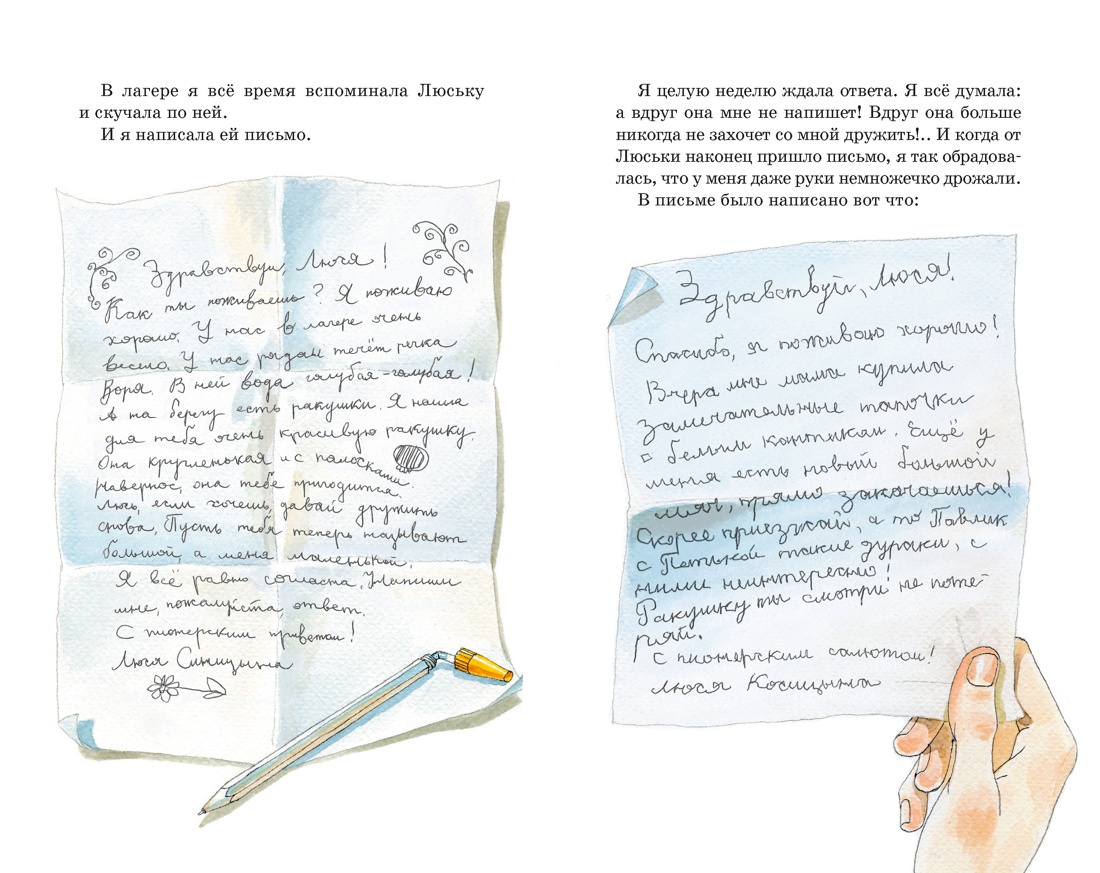 В лагере я всё время вспоминала Люську
и скучала по ней.
И я написала ей письмо.
Здравствуй, Люся!
Как ты поживаешь? Я поживаю
хорошо. У нас в лагере очень
весело. У нас рядом течёт речка
Воря. В ней вода голубая-голубая!
А на берегу есть ракушки. Я нашла
для тебя очень красивую ракушку.
Она кругленькая и с полосками.
Наверное, она тебе пригодится.
Люсь, если хочешь, давай дружить
снова. Пусть тебя теперь называют
большой, а меня маленькой.
Я всё равно согласна. Напиши
мне, пожалуйста, ответ.
С пионерским приветом!
Люся Синицына
Я целую неделю ждала ответа. Я всё думала:
а вдруг она мне не напишет! Вдруг она больше
никогда не захочет со мной дружить!.. И когда от
Люськи наконец пришло письмо, я так обрадова-
лась, что у меня даже руки немножечко дрожали.
В письме было написано вот что:
Здравствуй, Люся!
Спасибо, я поживаю хорошо!
Вчера мне мама купила
замечательные тапочки
с белым кантиком. Ещё у
меня есть новый большой
мяч, прямо закачаешься!
Скорее приезжай, а то Павлик
с Петькой такие дураки, с
ними неинтересно!
Ракушку ты смотри не поте-
ряй.
С пионерским салютом!
Люся Косицына